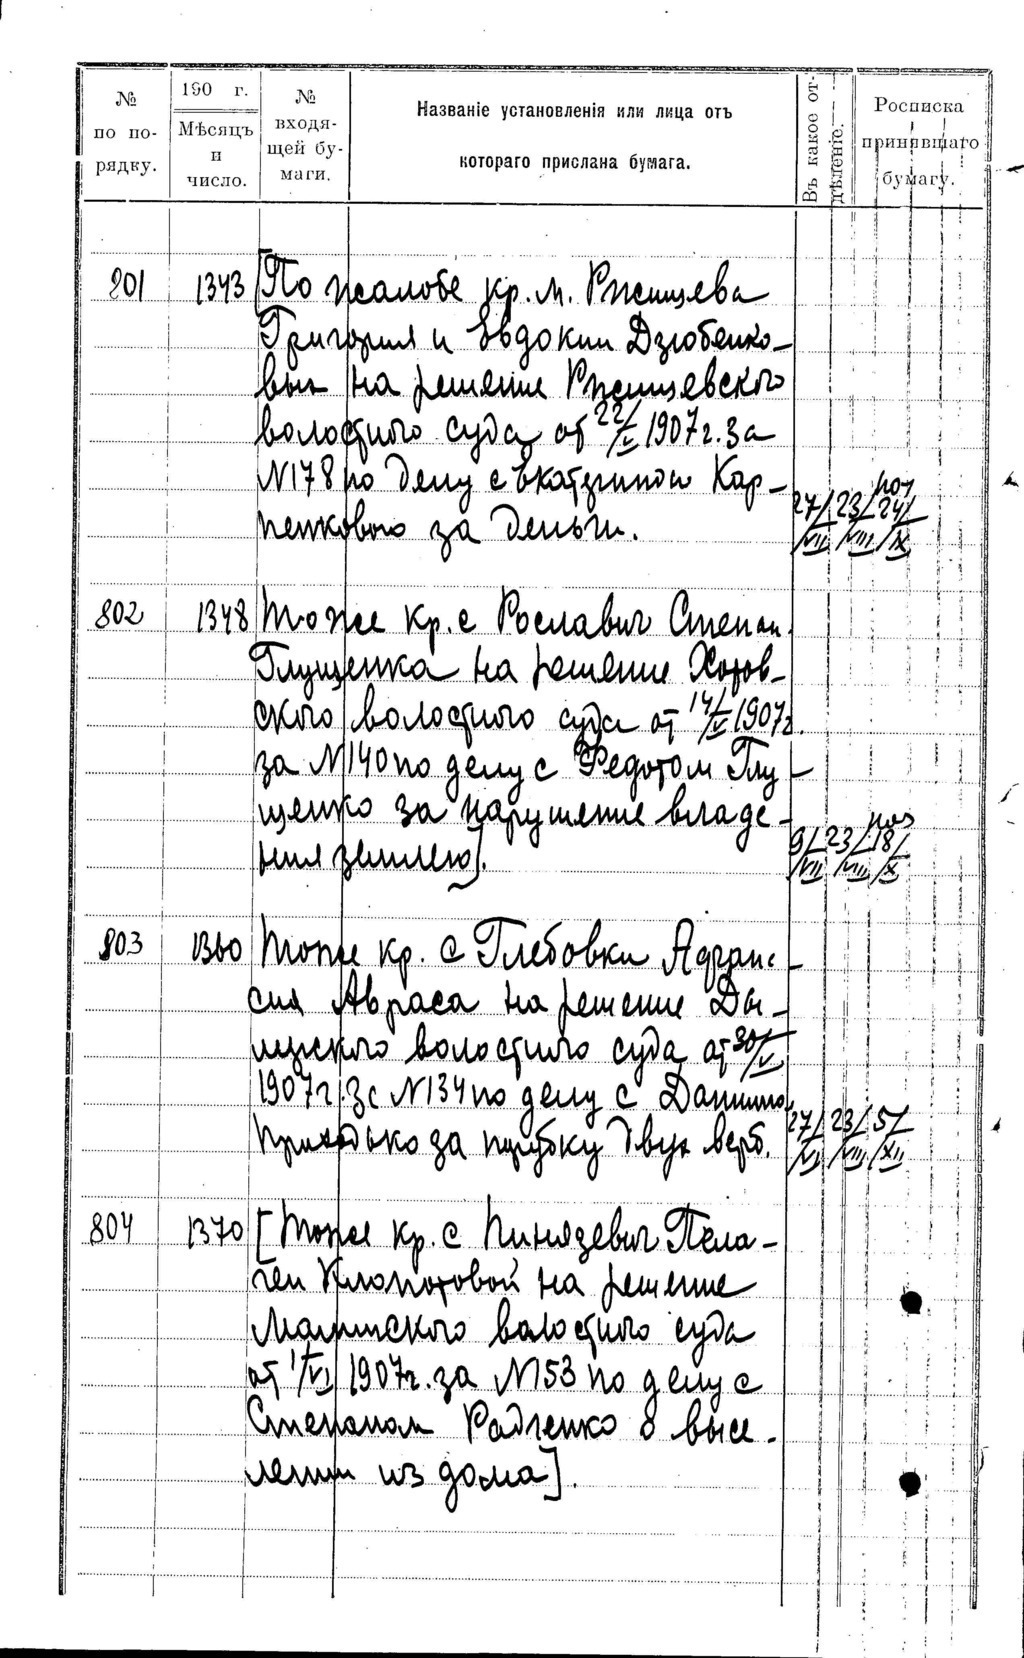 № по по- рядку.
190 г.
Мѣсяцъ и число.
№ входя- щей бу- маги.
Названіе установленія или лица отъ
котораго прислана бумага.
Въ какое от- дѣленіе.
Росписка принявшаго бумагу.
801 1343 [По жалобе кр. м. Ржищева
Григория и Евдокии Дзюбенко-
вых на решение Ржищевского
волостного суда от 22/V 1907 г. за
N 178 по делу с Екатериной Кар-
пенковою за деньги.
27/VII 23/VIII 24/IX
802 1348 Тоже кр. с Рославич Степан
Глущенка на решение Хотов-
ского волостного суда от 14/V 1907 г.
за N 140 по делу с Федотом Глу-
щенко за нарушение владе-
ния землею].
9/VII 23/VIII 18/X
803 1360 Тоже кр. с Глебовки
Авраса на решение Ды-
мерского волостного суда от 30/V
1907 г. за N 134 по делу с Данилом
Приходько за порубку двух верб.
27/VII 23/VIII 5/XII
804 1370 [Тоже кр. с Пинязевич Пела-
геи Клопотовой на решение
Малинского волостного суда
от 1/VI 1907 г. за N 53 по делу с
Степаном Радченко о высе-
лении из дома].